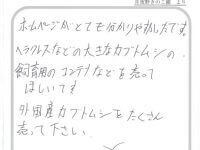 ホームページがとても分かりやすいです。
ヘラクレスなどの大きなカブトムシの
飼育用のコンテナなどを売って
ほしいです
外国産カブトムシをたくさん
売って下さい。